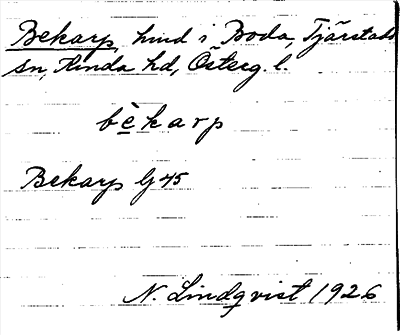 Bekarp, hmd i Boda, Tjärstads
sn, Kinda hd, Österg. l.
bèkarp
Bekarp Gj 45
N. Lindqvist 1926